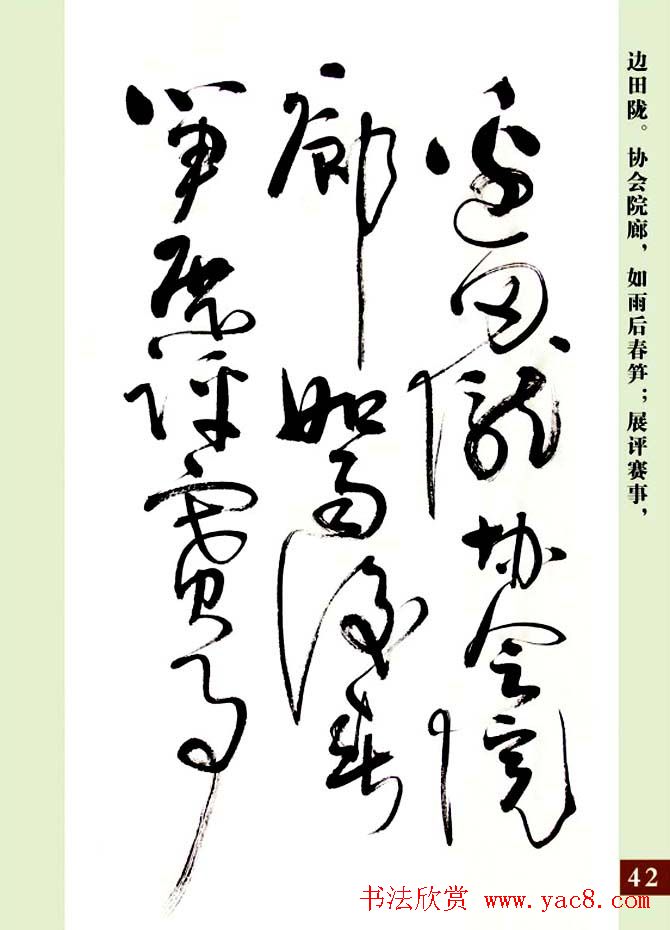 边田陇协会院
廊如雨后春
笋展评赛事
边田陇。协会院廊，如雨后春笋；展评赛事，
42
书法欣赏 www.yac8.com